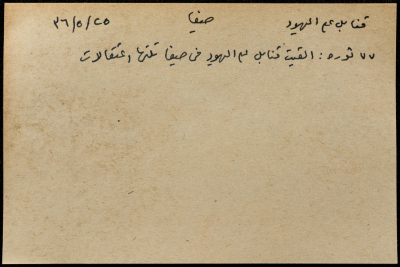 قنابل عم اليهود حيفا ٣٦/٥/٢٥
٧٧ ثوره : القيت قنابل عم اليهود في حيفا تلتها اعتقالات